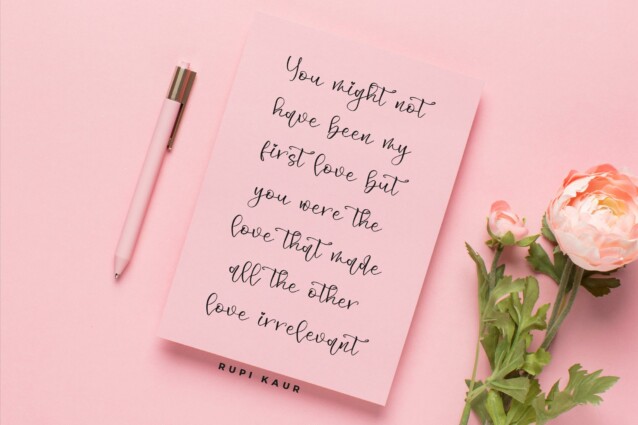 You might not
have been my
first love but
you were the
love that made
all the other
love irrelevant
RUPI KAUR